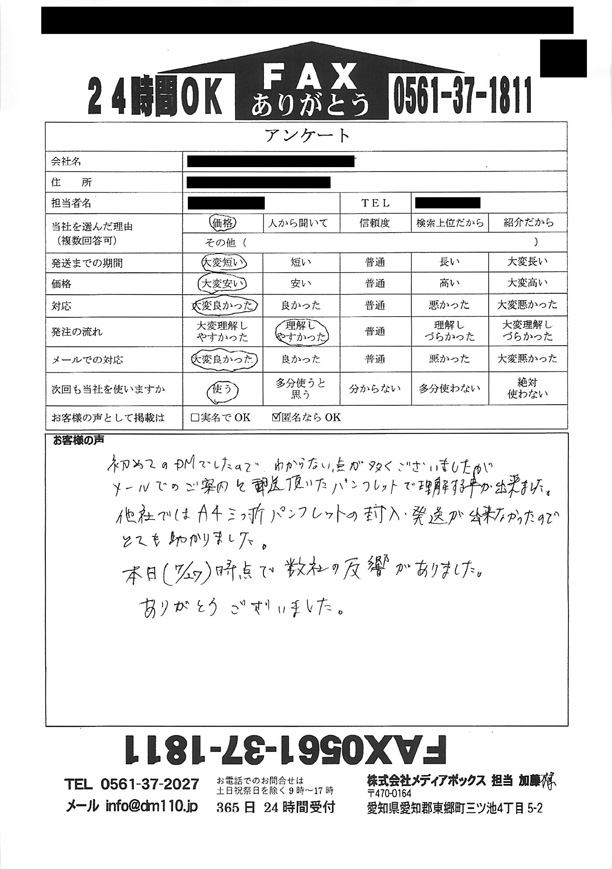 24時間OK
FAX
ありがとう
0561-37-1811
アンケート
会社名
住 所
担当者名 TEL
当社を選んだ理由
（複数回答可）
価格 人から聞いて 信頼度 検索上位だから 紹介だから
その他（ ）
発送までの期間 大変短い 短い 普通 長い 大変長い
価格 大変安い 安い 普通 高い 大変高い
対応 大変良かった 良かった 普通 悪かった 大変悪かった
発注の流れ 大変理解し
やすかった
理解し
やすかった
普通
理解し
づらかった
大変理解し
づらかった
メールでの対応 大変良かった 良かった 普通 悪かった 大変悪かった
次回も当社を使いますか 使う 多分使うと
思う
分からない 多分使わない 絶対
使わない
お客様の声として掲載は □実名でOK ☑匿名ならOK
お客様の声
初めてのDMでしたので、わからない点が多くございましたが
メールでのご案内と郵送頂いたパンフレットで理解する事が出来ました。
他社ではA4三つ折パンフレットの封入・発送が出来なかったので
とても助かりました。
本日(7/27)時点で数社の反響がありました。
ありがとうございました。
FAX0561-37-1811
TEL 0561-37-2027
メール info@dm110.jp
お電話でのお問合せは
土日祝祭日を除く9時〜17時
365日24時間受付
株式会社メディアボックス 担当 加藤様
〒470-0164
愛知県愛知郡東郷町三ツ池4丁目5-2